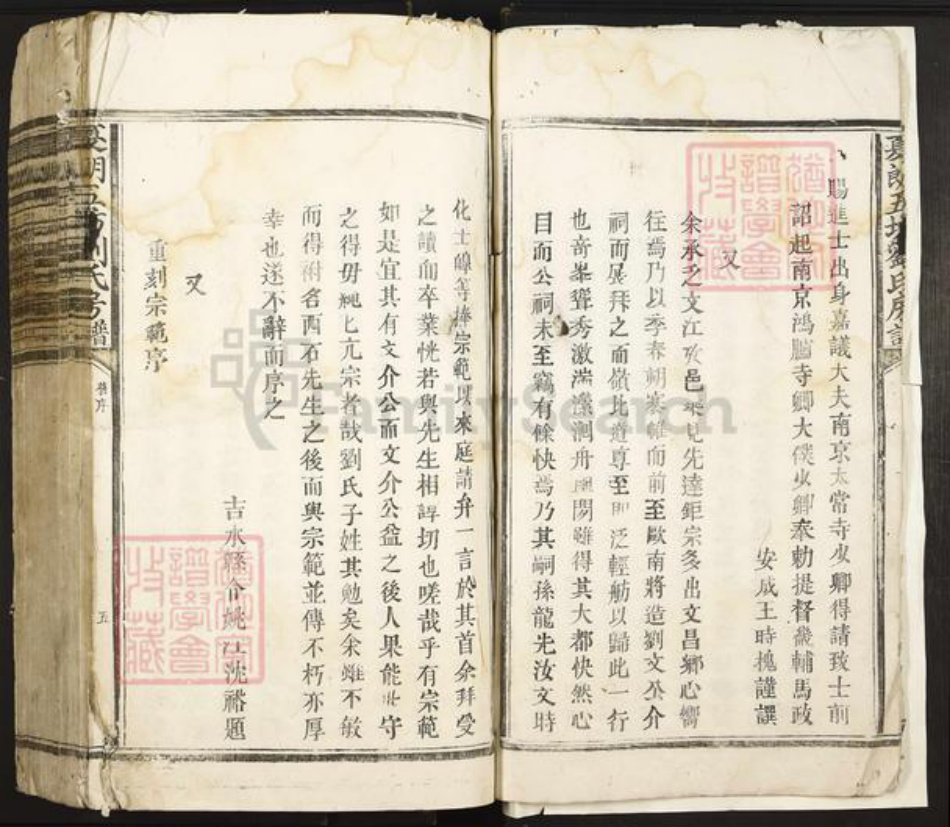 賜進士出身嘉議大夫南京太常寺少卿得請致士前
詔起南京鴻臚寺卿大僕少卿奉勅提督畿輔馬政
安成王時槐謹譔
又
余承乏文江攷邑乘見先達鉅宗多出文昌鄉心嚮
往焉乃以季春朔褰帷而前至歐南將造劉文介
祠而展拜之而嶺比道尊至即泛輕舫以歸此一行
也奇峯聳秀激湍瀠洄舟輿閱雖得其大都快然心
目而公祠未至竊有餘快焉乃其嗣孫龍先汝文時
化士皥等捧宗範以來庭請弁一言於其首余拜受
之讀而卒業恍若與先生相誶切也嗟哉乎有宗範
如是宜其有文介公而文介公益之後人果能世守
之得毋繩上亢宗者哉劉氏子姓其勉矣余雖不敏
而得附名西石先生之後而與宗範並傳不朽亦厚
幸也遂不辭而序之
吉水縣令姚江沈裕題
又
重刻宗範序
五
FamilySearch
譜學會
收藏
譜學會
收藏